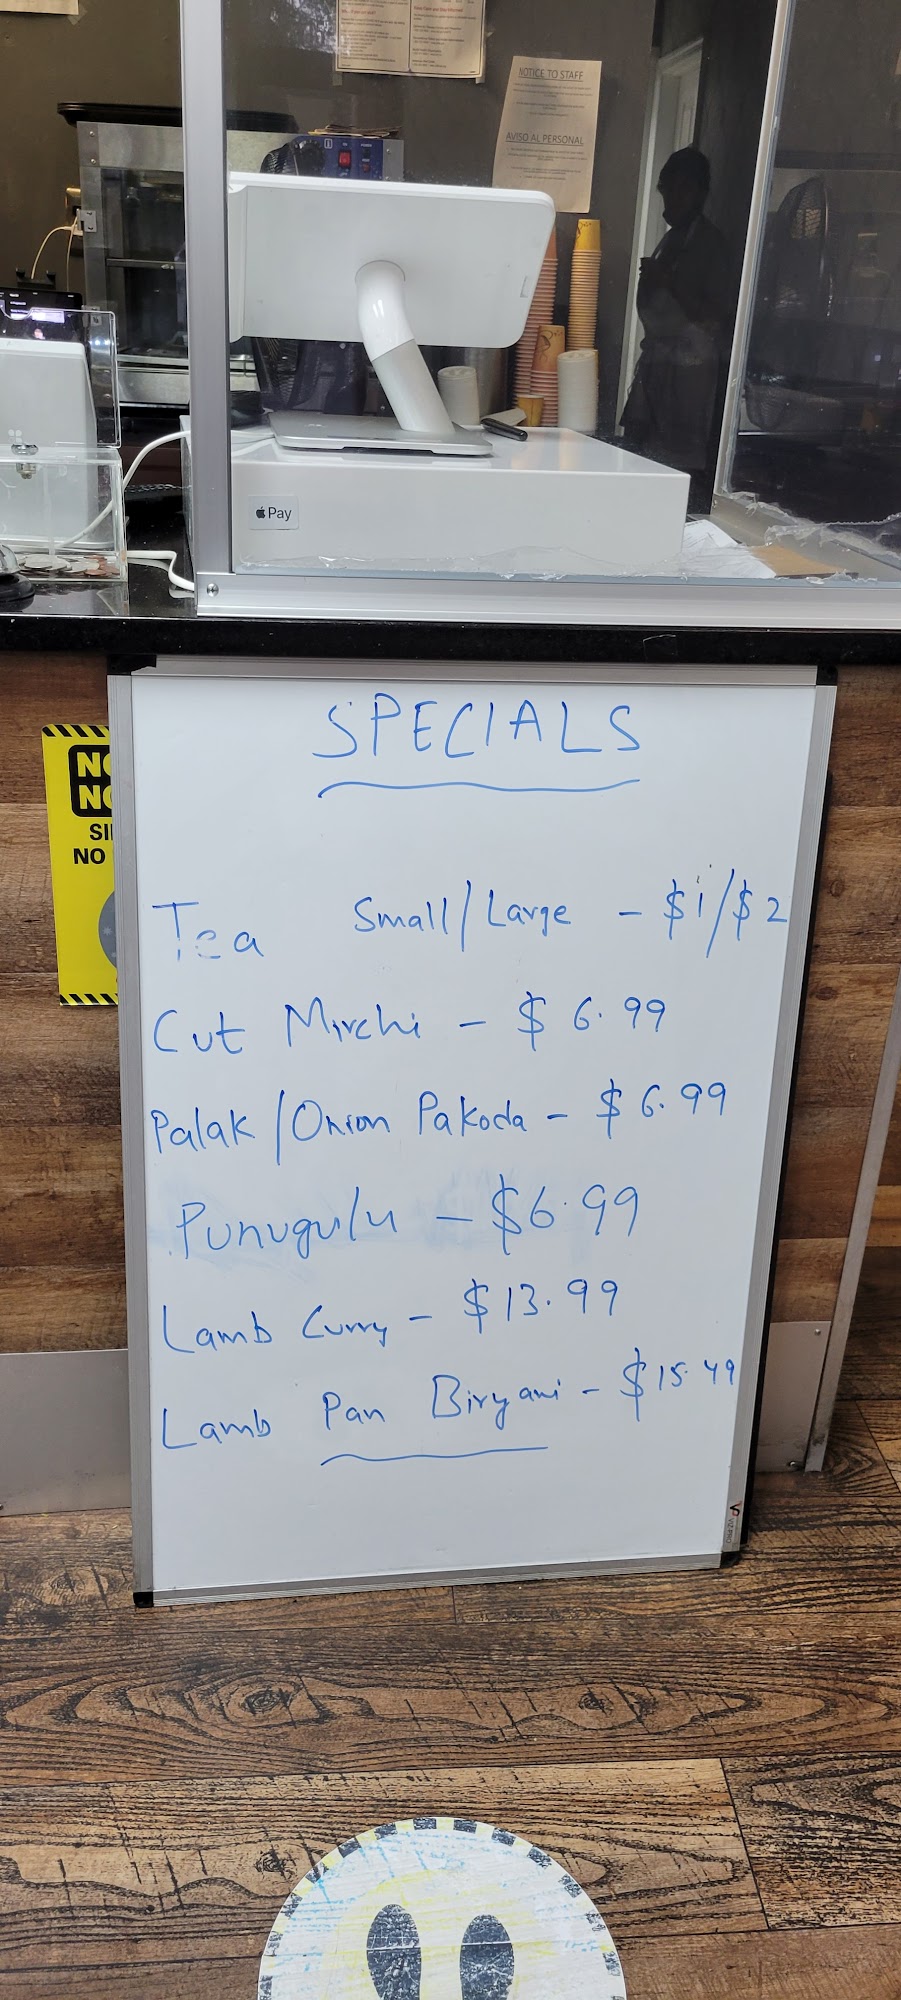 NOTICE TO STAFF
AVISO AL PERSONAL
Pay
SPECIALS
Tea Small/Large - $1/$2
Cut Mirchi - $6.99
Palak/Onion Pakoda - $6.99
Punugulu - $6.99
Lamb Curry - $13.99
Lamb Pan Biryani - $15.49
NO